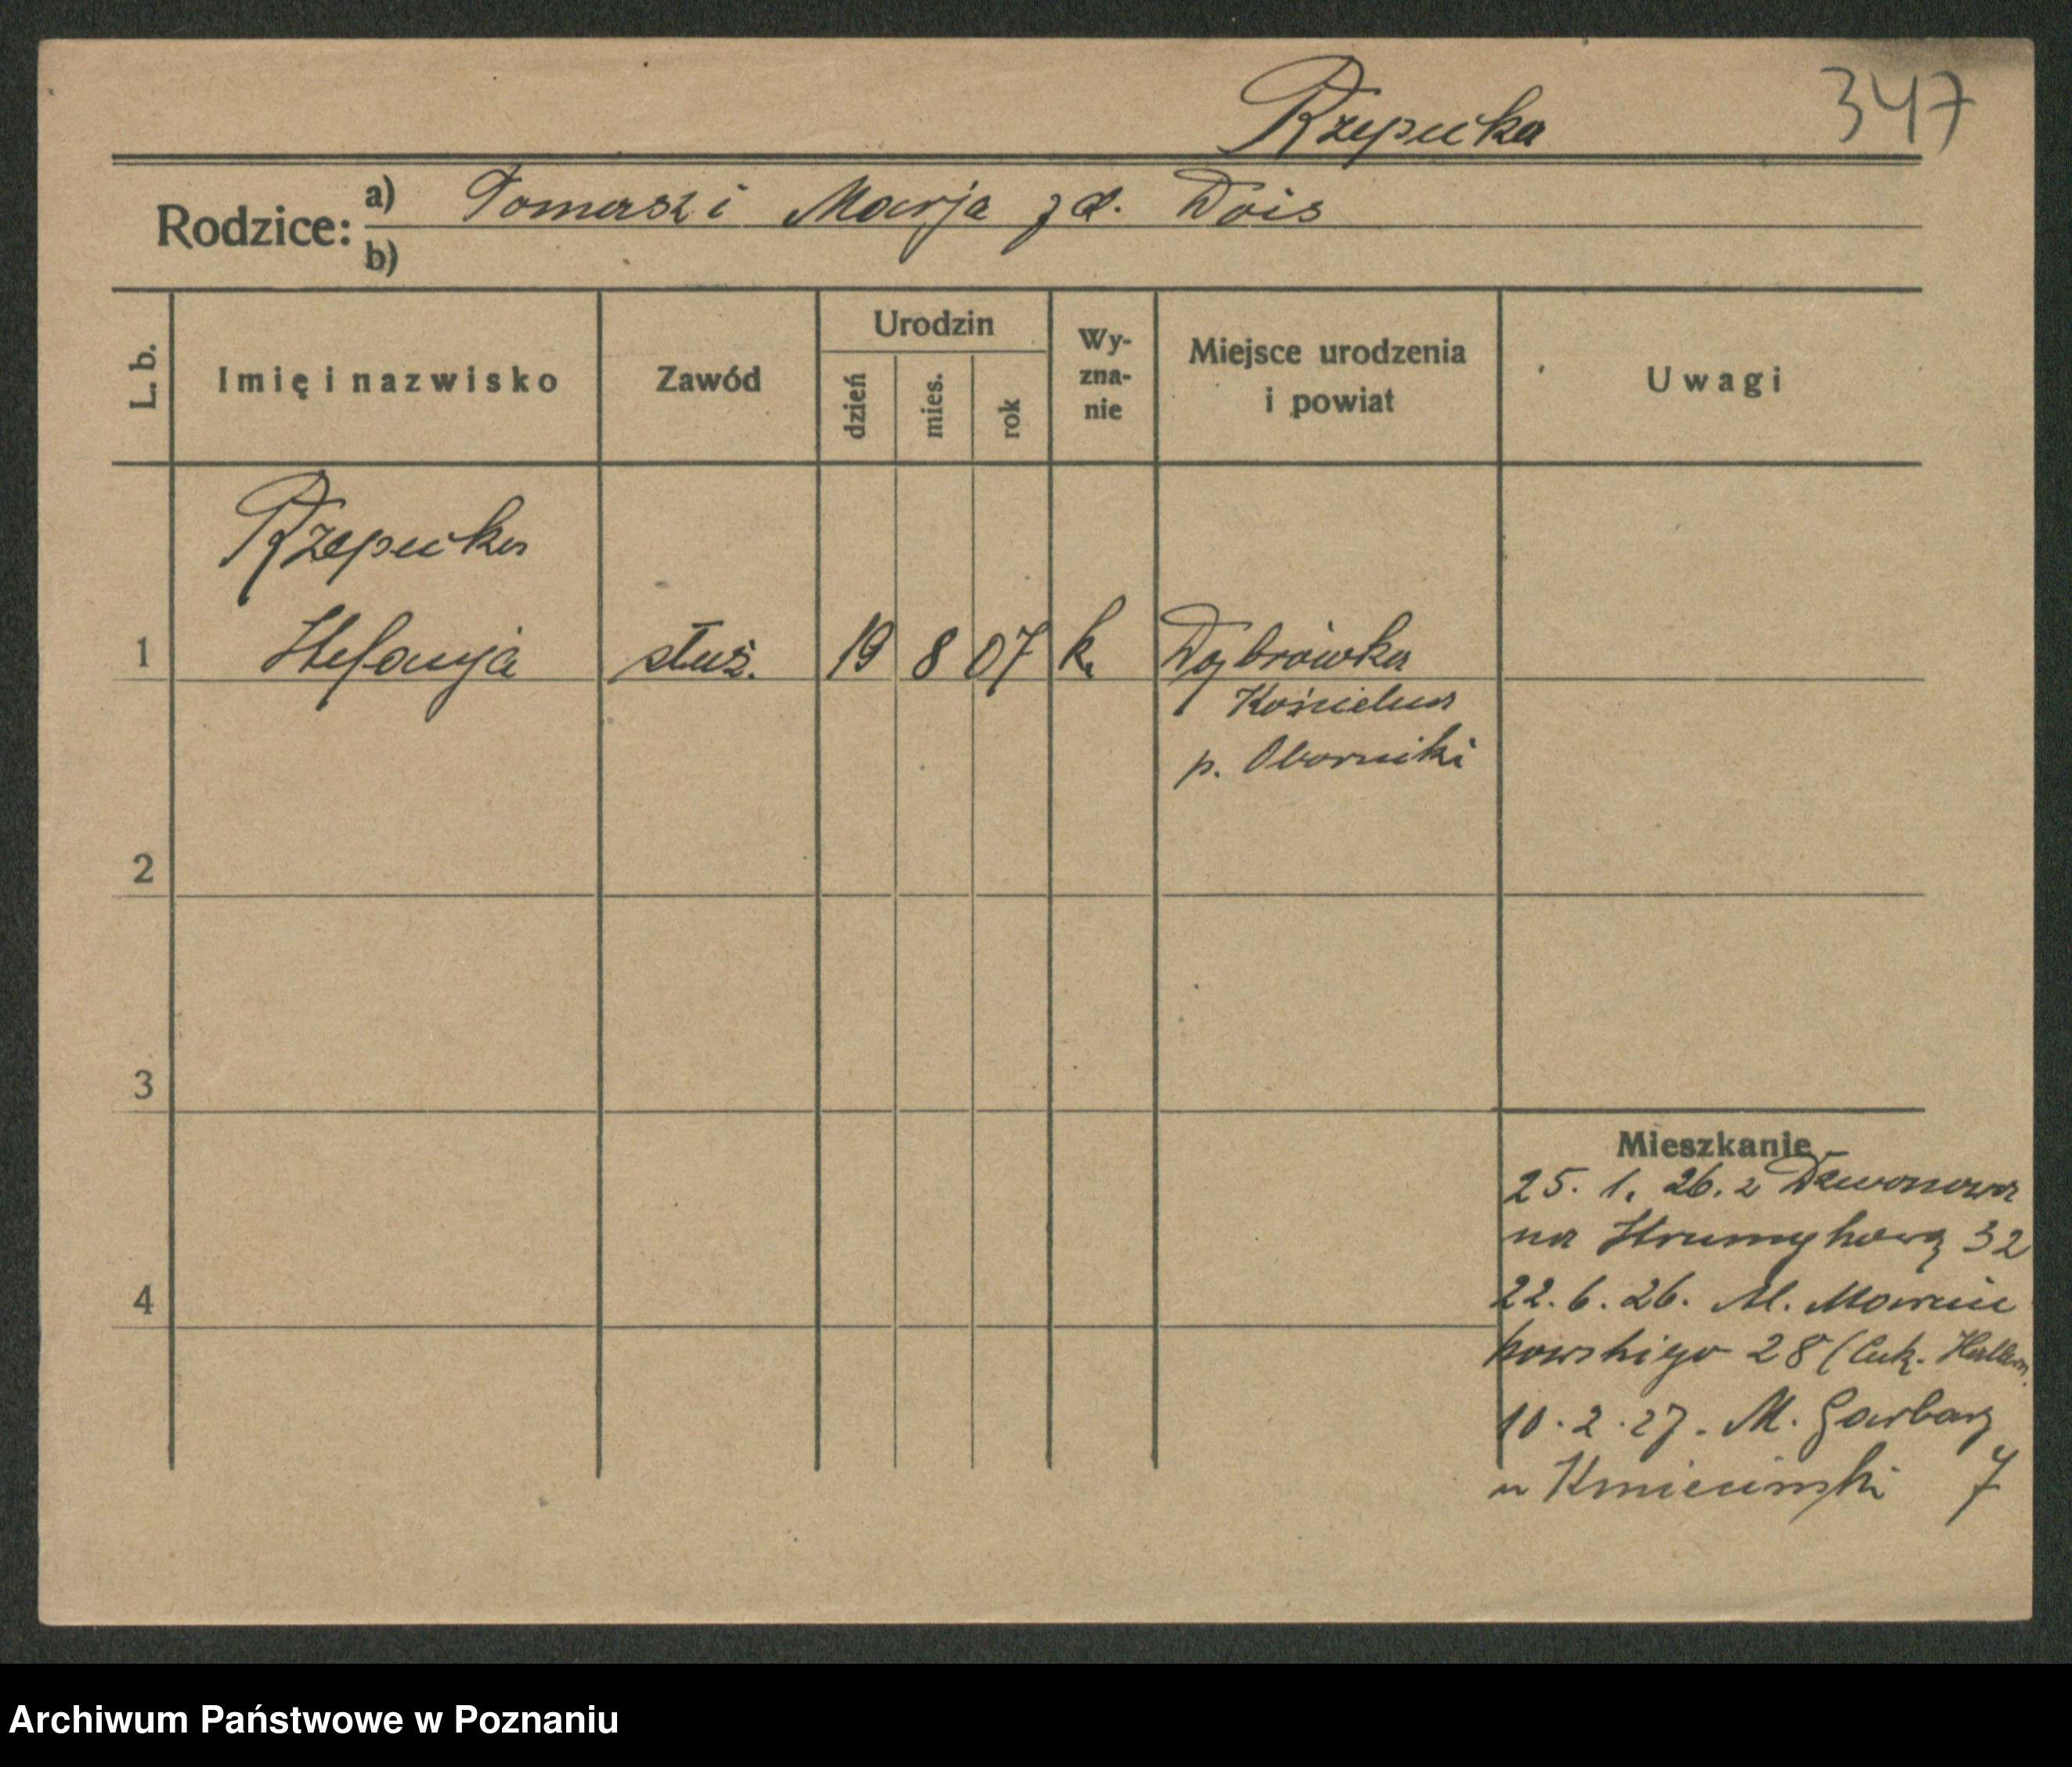 Rzepecka
347
Rodzice: a) Tomasz i Marja zd. Dois
b)
L. b. Imię i nazwisko Zawód Urodzin dzień mies. rok Wy-zna-nie Miejsce urodzenia i powiat Uwagi
Rzepecka
1 Stefanja służ. 19 8 07 k. Dąbrówka
Kościelna
p. Oborniki
2
3
Mieszkanie
25. 1. 26. z Dzwonowa
na Strumykową 32
22. 6. 26. Al. Marcin
4
kowskiego 28 (Cuk.
10. 2. 27. M. Garbary
u Kmieciński 7
Archiwum Państwowe w Poznaniu